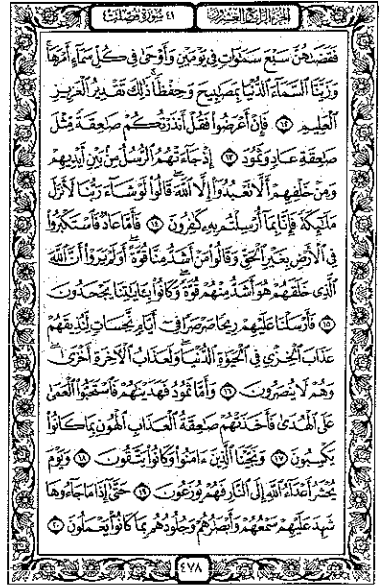 الجزء الرابع والعشرون ٤١ سورة فصلت
فَقَضَىٰهُنَّ سَبْعَ سَمَٰوَاتٍ فِى يَوْمَيْنِ وَأَوْحَىٰ فِى كُلِّ سَمَآءٍ أَمْرَهَا
وَزَيَّنَّا ٱلسَّمَآءَ ٱلدُّنْيَا بِمَصَٰبِيحَ وَحِفْظًا ذَٰلِكَ تَقْدِيرُ ٱلْعَزِيزِ
ٱلْعَلِيمِ ١٢ فَإِنْ أَعْرَضُوا۟ فَقُلْ أَنذَرْتُكُمْ صَٰعِقَةً مِّثْلَ
صَٰعِقَةِ عَادٍ وَثَمُودَ ١٣ إِذْ جَآءَتْهُمُ ٱلرُّسُلُ مِنۢ بَيْنِ أَيْدِيهِمْ
وَمِنْ خَلْفِهِمْ أَلَّا تَعْبُدُوٓا۟ إِلَّا ٱللَّهَ قَالُوا۟ لَوْ شَآءَ رَبُّنَا لَأَنزَلَ
مَلَٰٓئِكَةً فَإِنَّا بِمَآ أُرْسِلْتُم بِهِۦ كَٰفِرُونَ ١٤ فَأَمَّا عَادٌ فَٱسْتَكْبَرُوا۟
فِى ٱلْأَرْضِ بِغَيْرِ ٱلْحَقِّ وَقَالُوا۟ مَنْ أَشَدُّ مِنَّا قُوَّةً أَوَلَمْ يَرَوْا۟ أَنَّ ٱللَّهَ
ٱلَّذِى خَلَقَهُمْ هُوَ أَشَدُّ مِنْهُمْ قُوَّةً وَكَانُوا۟ بِـَٔايَٰتِنَا يَجْحَدُونَ
١٥ فَأَرْسَلْنَا عَلَيْهِمْ رِيحًا صَرْصَرًا فِىٓ أَيَّامٍ نَّحِسَاتٍ لِّنُذِيقَهُمْ
عَذَابَ ٱلْخِزْىِ فِى ٱلْحَيَوٰةِ ٱلدُّنْيَا وَلَعَذَابُ ٱلْءَاخِرَةِ أَخْزَىٰ
وَهُمْ لَا يُنصَرُونَ ١٦ وَأَمَّا ثَمُودُ فَهَدَيْنَٰهُمْ فَٱسْتَحَبُّوا۟ ٱلْعَمَىٰ
عَلَى ٱلْهُدَىٰ فَأَخَذَتْهُمْ صَٰعِقَةُ ٱلْعَذَابِ ٱلْهُونِ بِمَا كَانُوا۟
يَكْسِبُونَ ١٧ وَنَجَّيْنَا ٱلَّذِينَ ءَامَنُوا۟ وَكَانُوا۟ يَتَّقُونَ ١٨ وَيَوْمَ
يُحْشَرُ أَعْدَآءُ ٱللَّهِ إِلَى ٱلنَّارِ فَهُمْ يُوزَعُونَ ١٩ حَتَّىٰٓ إِذَا مَا جَآءُوهَا
شَهِدَ عَلَيْهِمْ سَمْعُهُمْ وَأَبْصَٰرُهُمْ وَجُلُودُهُم بِمَا كَانُوا۟ يَعْمَلُونَ ٢٠
٤٧٨